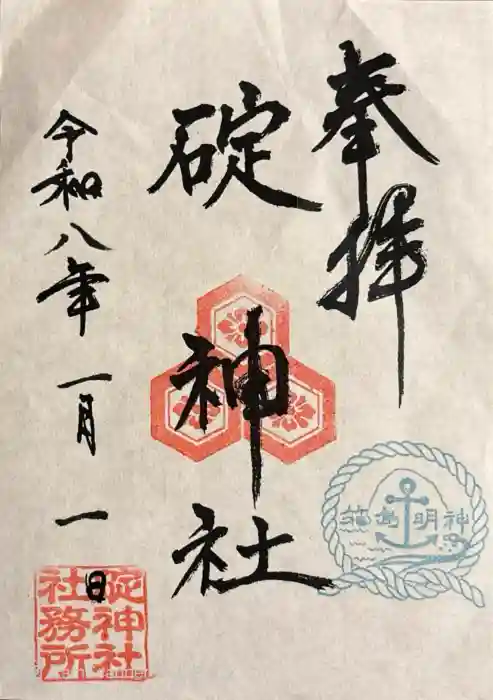 奉拝
碇神社
令和八年一月一日
箱島明神
碇神社
社務所